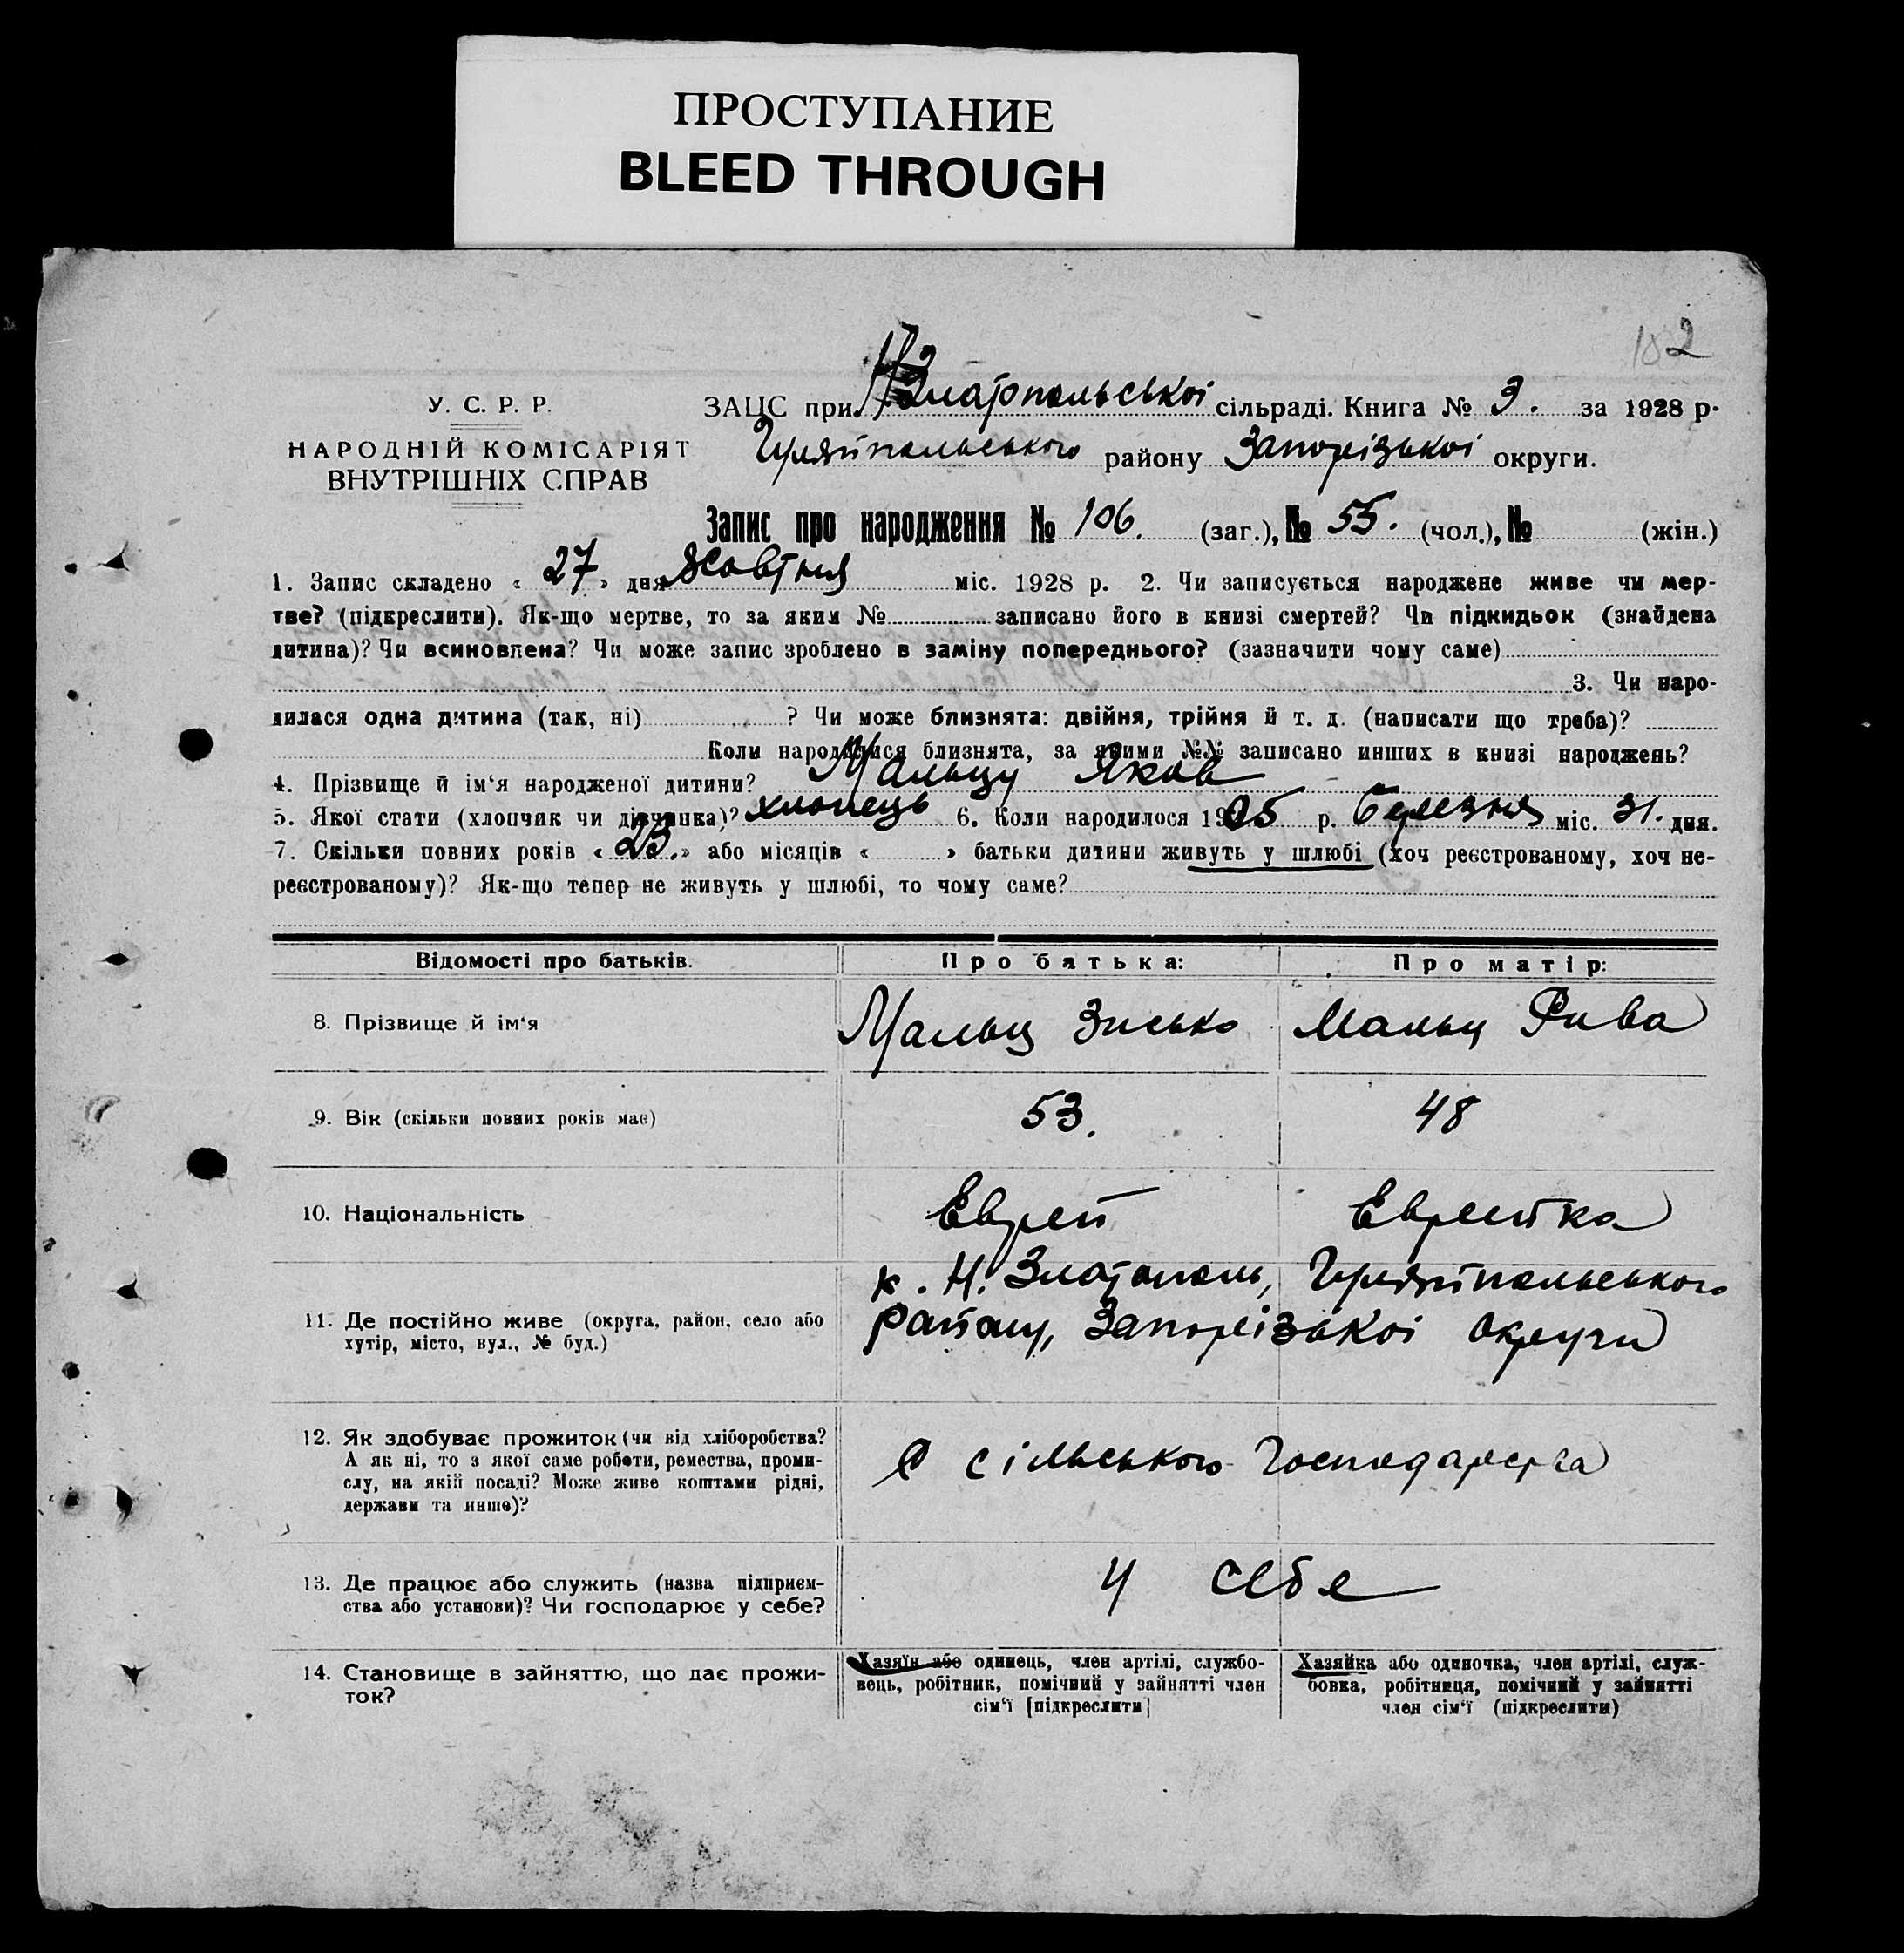 ПРОСТУПАНИЕ
BLEED THROUGH
102
У. С. Р. Р.
НАРОДНІЙ КОМІСАРІЯТ
ВНУТРІШНІХ СПРАВ
ЗАЦС при Златопольської сільраді. Книга № 3. за 1928 р.
Гуляйпольського району Запорізької округи.
Запис про народження № 106. (заг.), № 55. (чол.), № (жін.)
1. Запис складено « 27 » дня Жовтня міс. 1928 р. 2. Чи записується народжене живе чи мер-
тве? (підкреслити). Як-що мертве, то за яким № записано його в книзі смертей? Чи підкидьок (знайдена
дитина)? Чи всиновлена? Чи може запис зроблено в заміну попереднього? (зазначити чому саме)
3. Чи наро-
дилася одна дитина (так, ні) ? Чи може близнята: двійня, трійня й т. д. (написати що треба)?
Коли народилися близнята, за якими №№ записано инших в книзі народжень?
4. Прізвище й ім'я народженої дитини? Мальцу Яков
5. Якої стати (хлопчик чи дівчинка)? хлопець 6. Коли народилося 1905 р. Березня міс. 31. дня.
7. Скільки повних років « 25. » або місяців « » батьки дитини живуть у шлюбі (хоч реєстрованому, хоч не-
реєстрованому)? Як-що тепер не живуть у шлюбі, то чому саме?
Відомості про батьків. Про батька: Про матір:
8. Прізвище й ім'я Мальц Зисько Мальц Рива
9. Вік (скільки повних років має) 53. 48
10. Національність Еврей Еврейка
к. Н. Златополь, Гуляйпольського
11. Де постійно живе (округа, район, село або
хутір, місто, вул., № буд.) району, Запорізької округи
12. Як здобуває прожиток (чи від хліборобства?
А як ні, то з якої саме роботи, ремества, проми-
слу, на якій посаді? Може живе коштами рідні,
держави та инше)? С сільського господарства
13. Де працює або служить (назва підприєм-
ства або установи)? Чи господарює у себе? У себе
14. Становище в зайняттю, що дає прожи-
ток?
Хазяїн або одинець, член артілі, службо-
вець, робітник, помічний у зайнятті член
сім'ї [підкреслити]
Хазяйка або одиночка, член артілі, служ-
бовка, робітниця, помічний у зайнятті
член сім'ї (підкреслити)